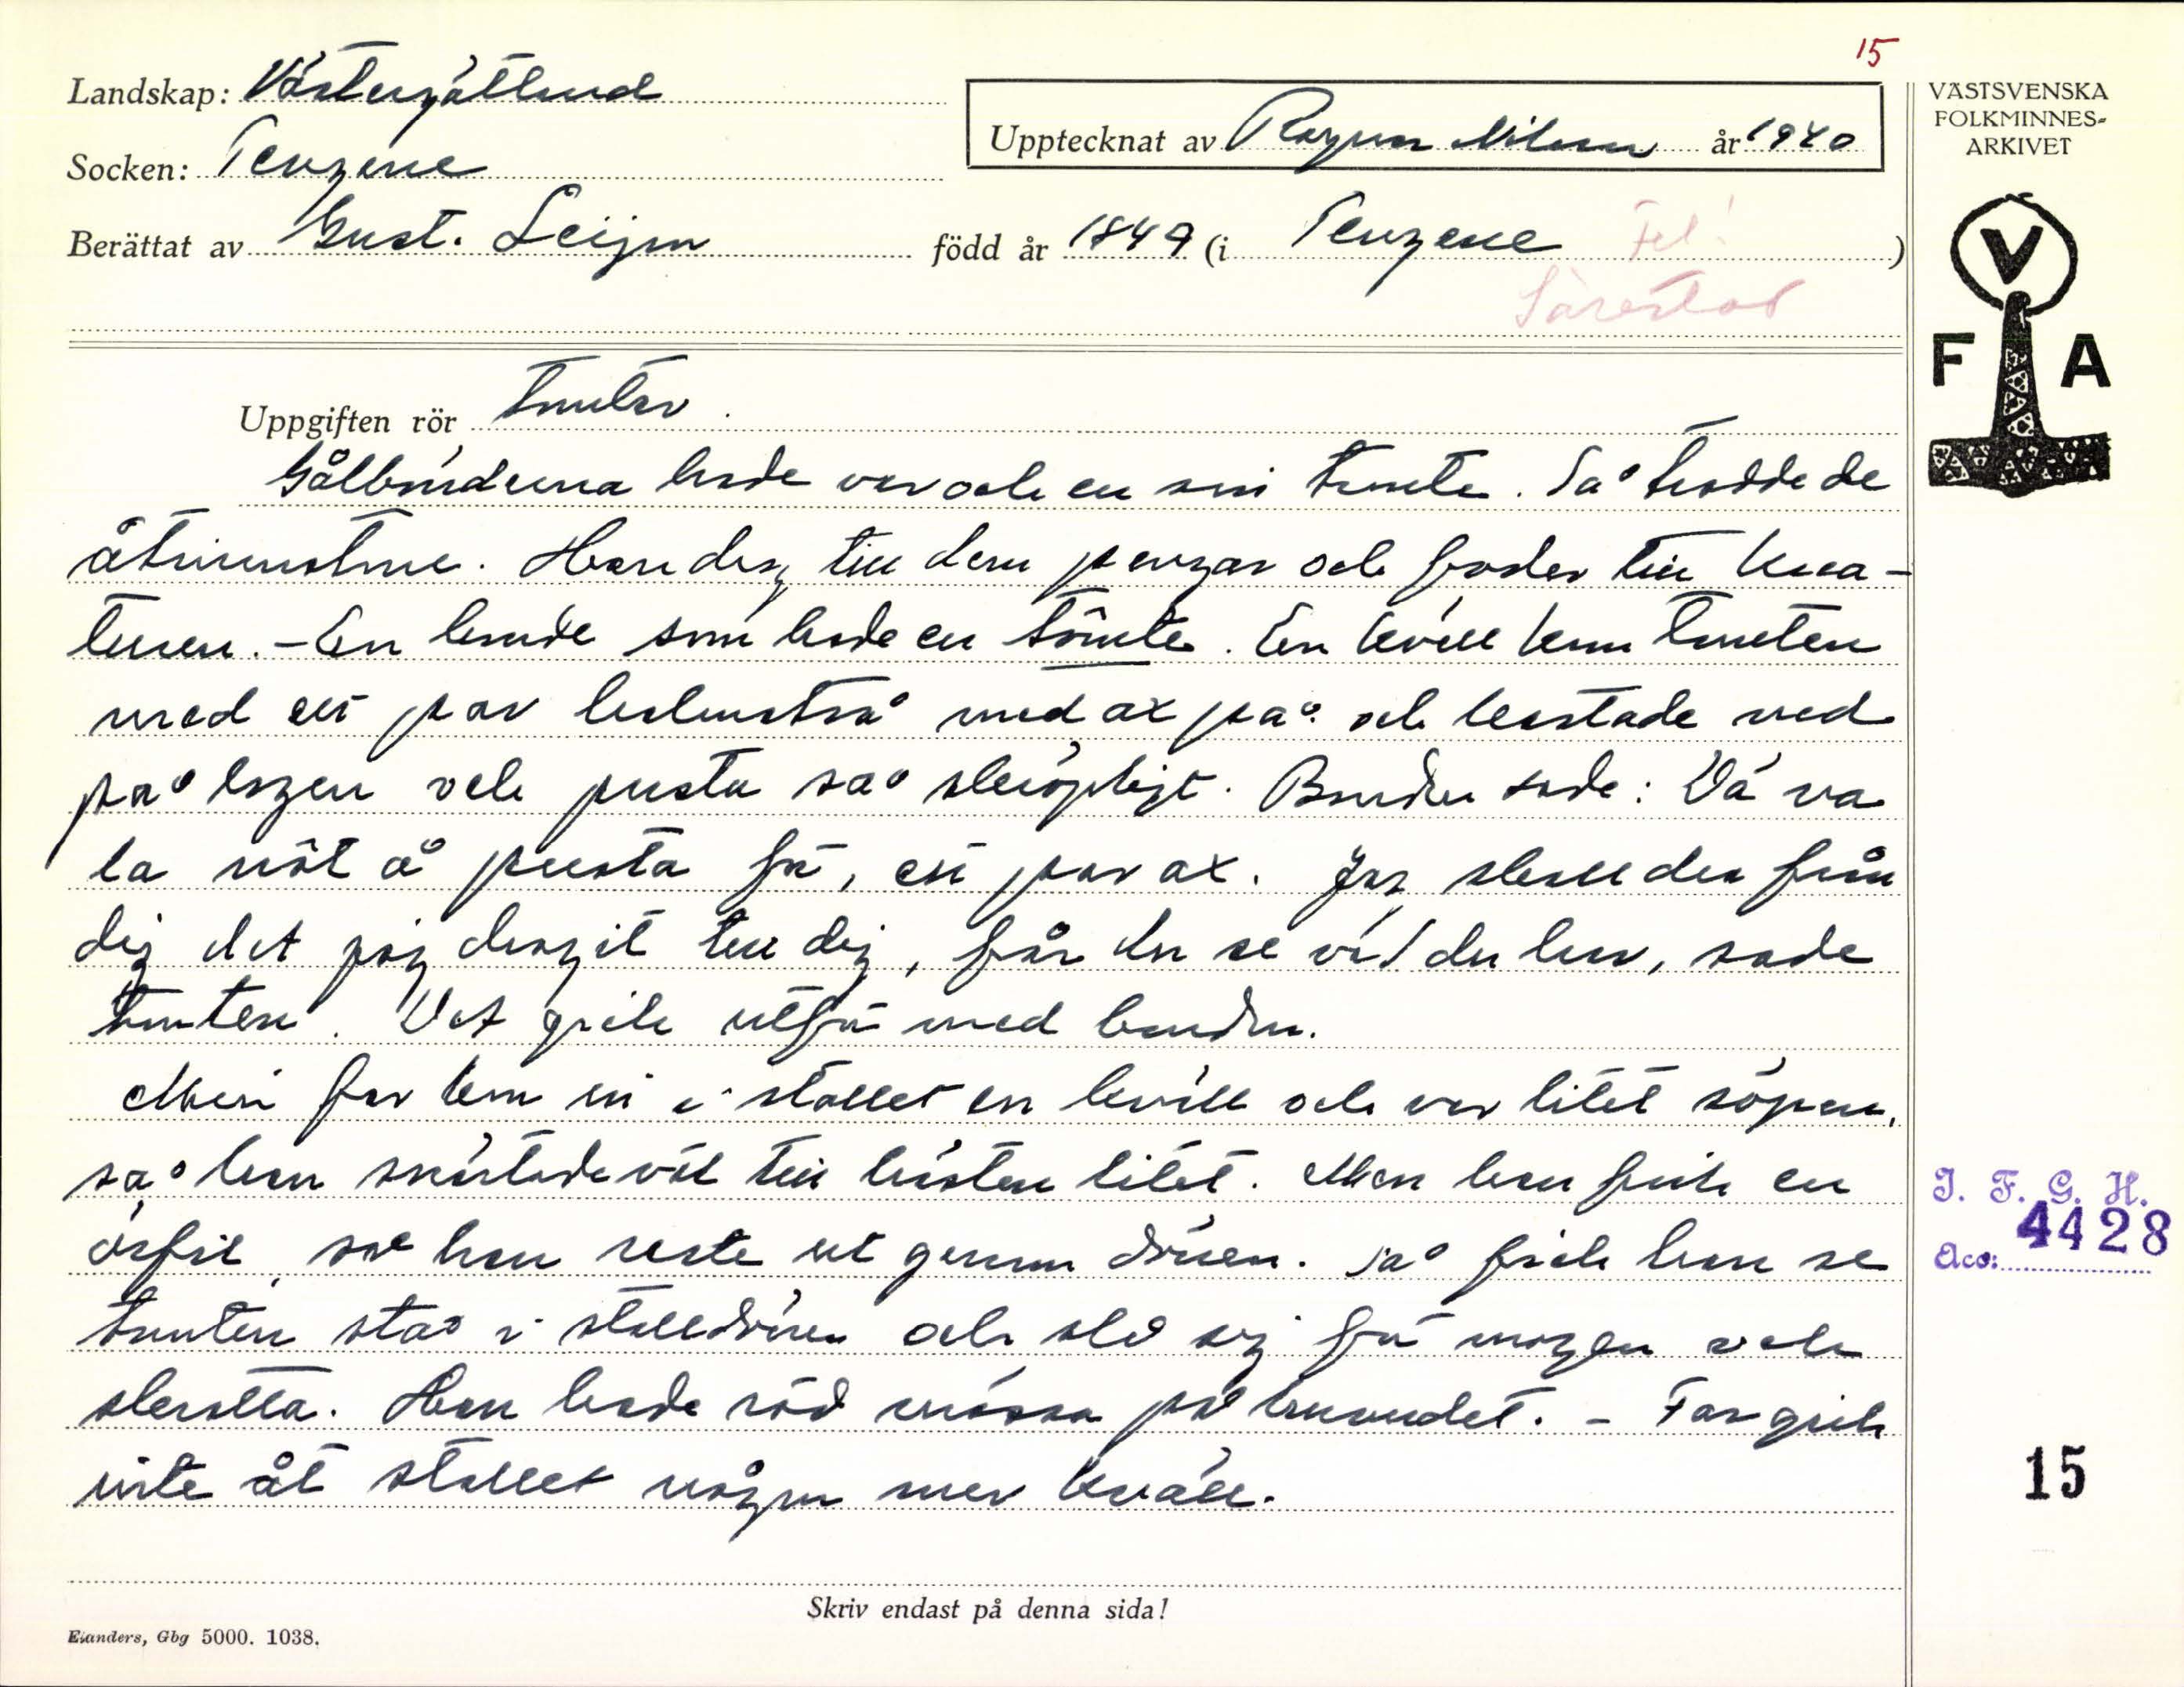 15
Landskap: Västergötland
Upptecknat av Ragnar Nilsson år 1940
VÄSTSVENSKA
FOLKMINNES-
ARKIVET
Socken: Tengene
Berättat av Gust. Leijon född år 1849 (i Tengene Fel! )
Särestad
V
F A
Uppgiften rör Tomtar.
Gålbönderna hade var och en sin tomte. Så trodde de
åtminstone. Han drog till dem pengar och foder till krea-
turen. - En bonde som hade en tomte. En kväll kom tomten
med ett par halmstrå med ax på och kastade ned
på logen och pusta så skröpligt. Bonden sade: Dä va
la nöt å pusta för, ett par ax. Jag skall dra från
dig det jag dragit till dig, får du se va' du har, sade
tomten. Det gick utför med bonden.
Min far kom in i stallet en kväll och var litet söpen,
så han snärtade väl till hästen litet. Men han fick en
örfil, så han reste ut genom dörren. Så fick han se
tomten stå i stalldörren och slå sig för magen och
skratta. Han hade röd mössa på huvudet. - Far gick
inte åt stallet någon mer kväll.
I. F. G. H.
4428
Acc:
15
Skriv endast på denna sida!
Elanders, Gbg 5000. 1038.